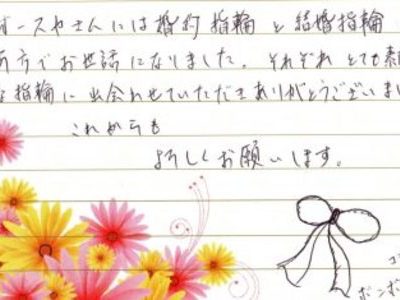 オースヤさんには婚約指輪と結婚指輪
両方でお世話になりました。それぞれとても素
な指輪に出会わせていただきありがとうございまし
これからも
よろしくお願いします。
ボンボ